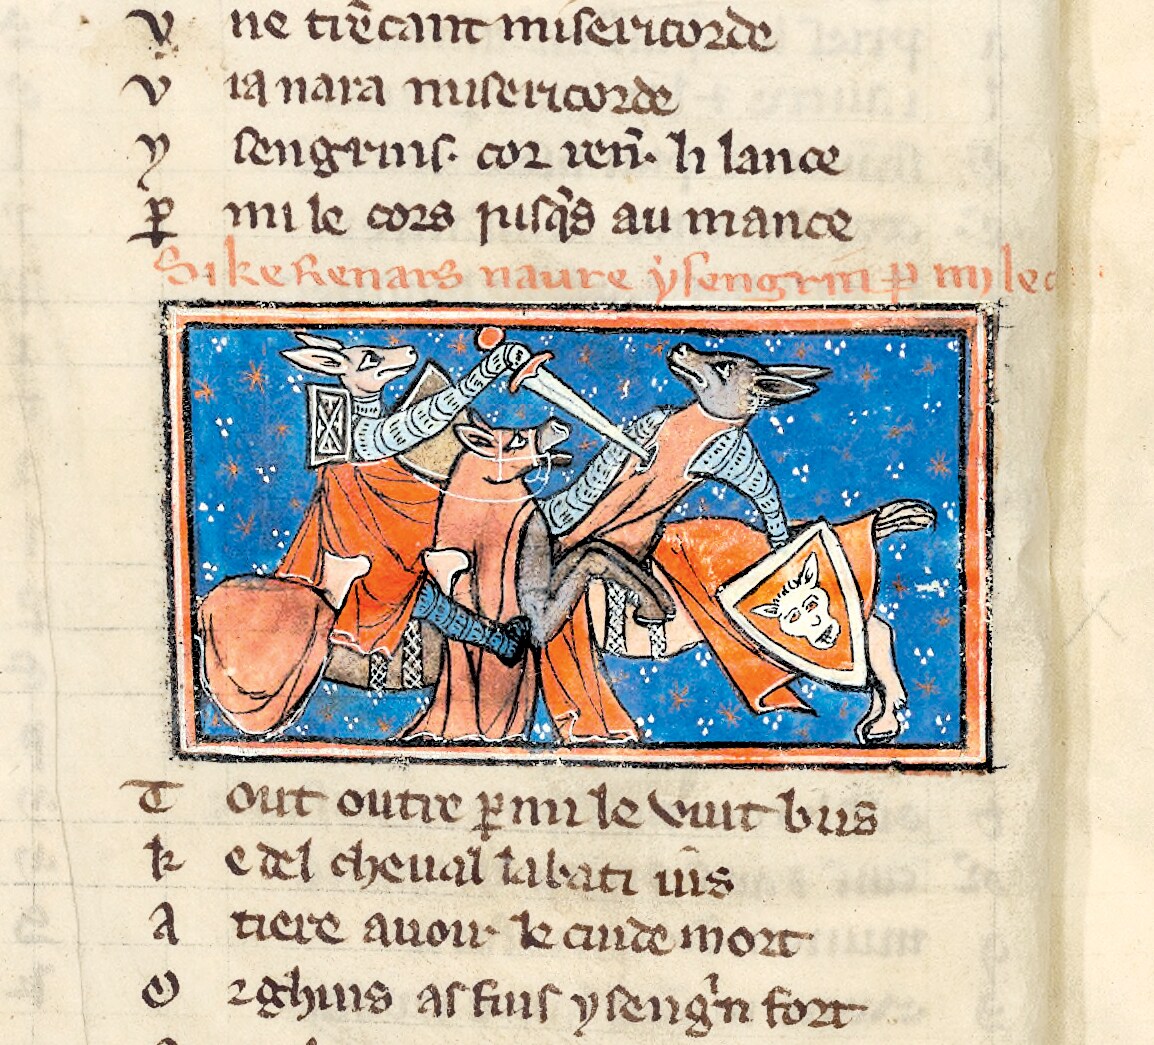 V ne trēcant misericorde
V ia nara misericorde
Y sengrins. cor ren̄. li lance
P mi le cors jusq̄s au mance
Si ke Renars naure ysengrin ꝑ my le c
T out outre ꝑmi le vuit bus
K e del cheual labati
A tiere auoir le cuide mort
O rghius as fuis ysengͥn fort